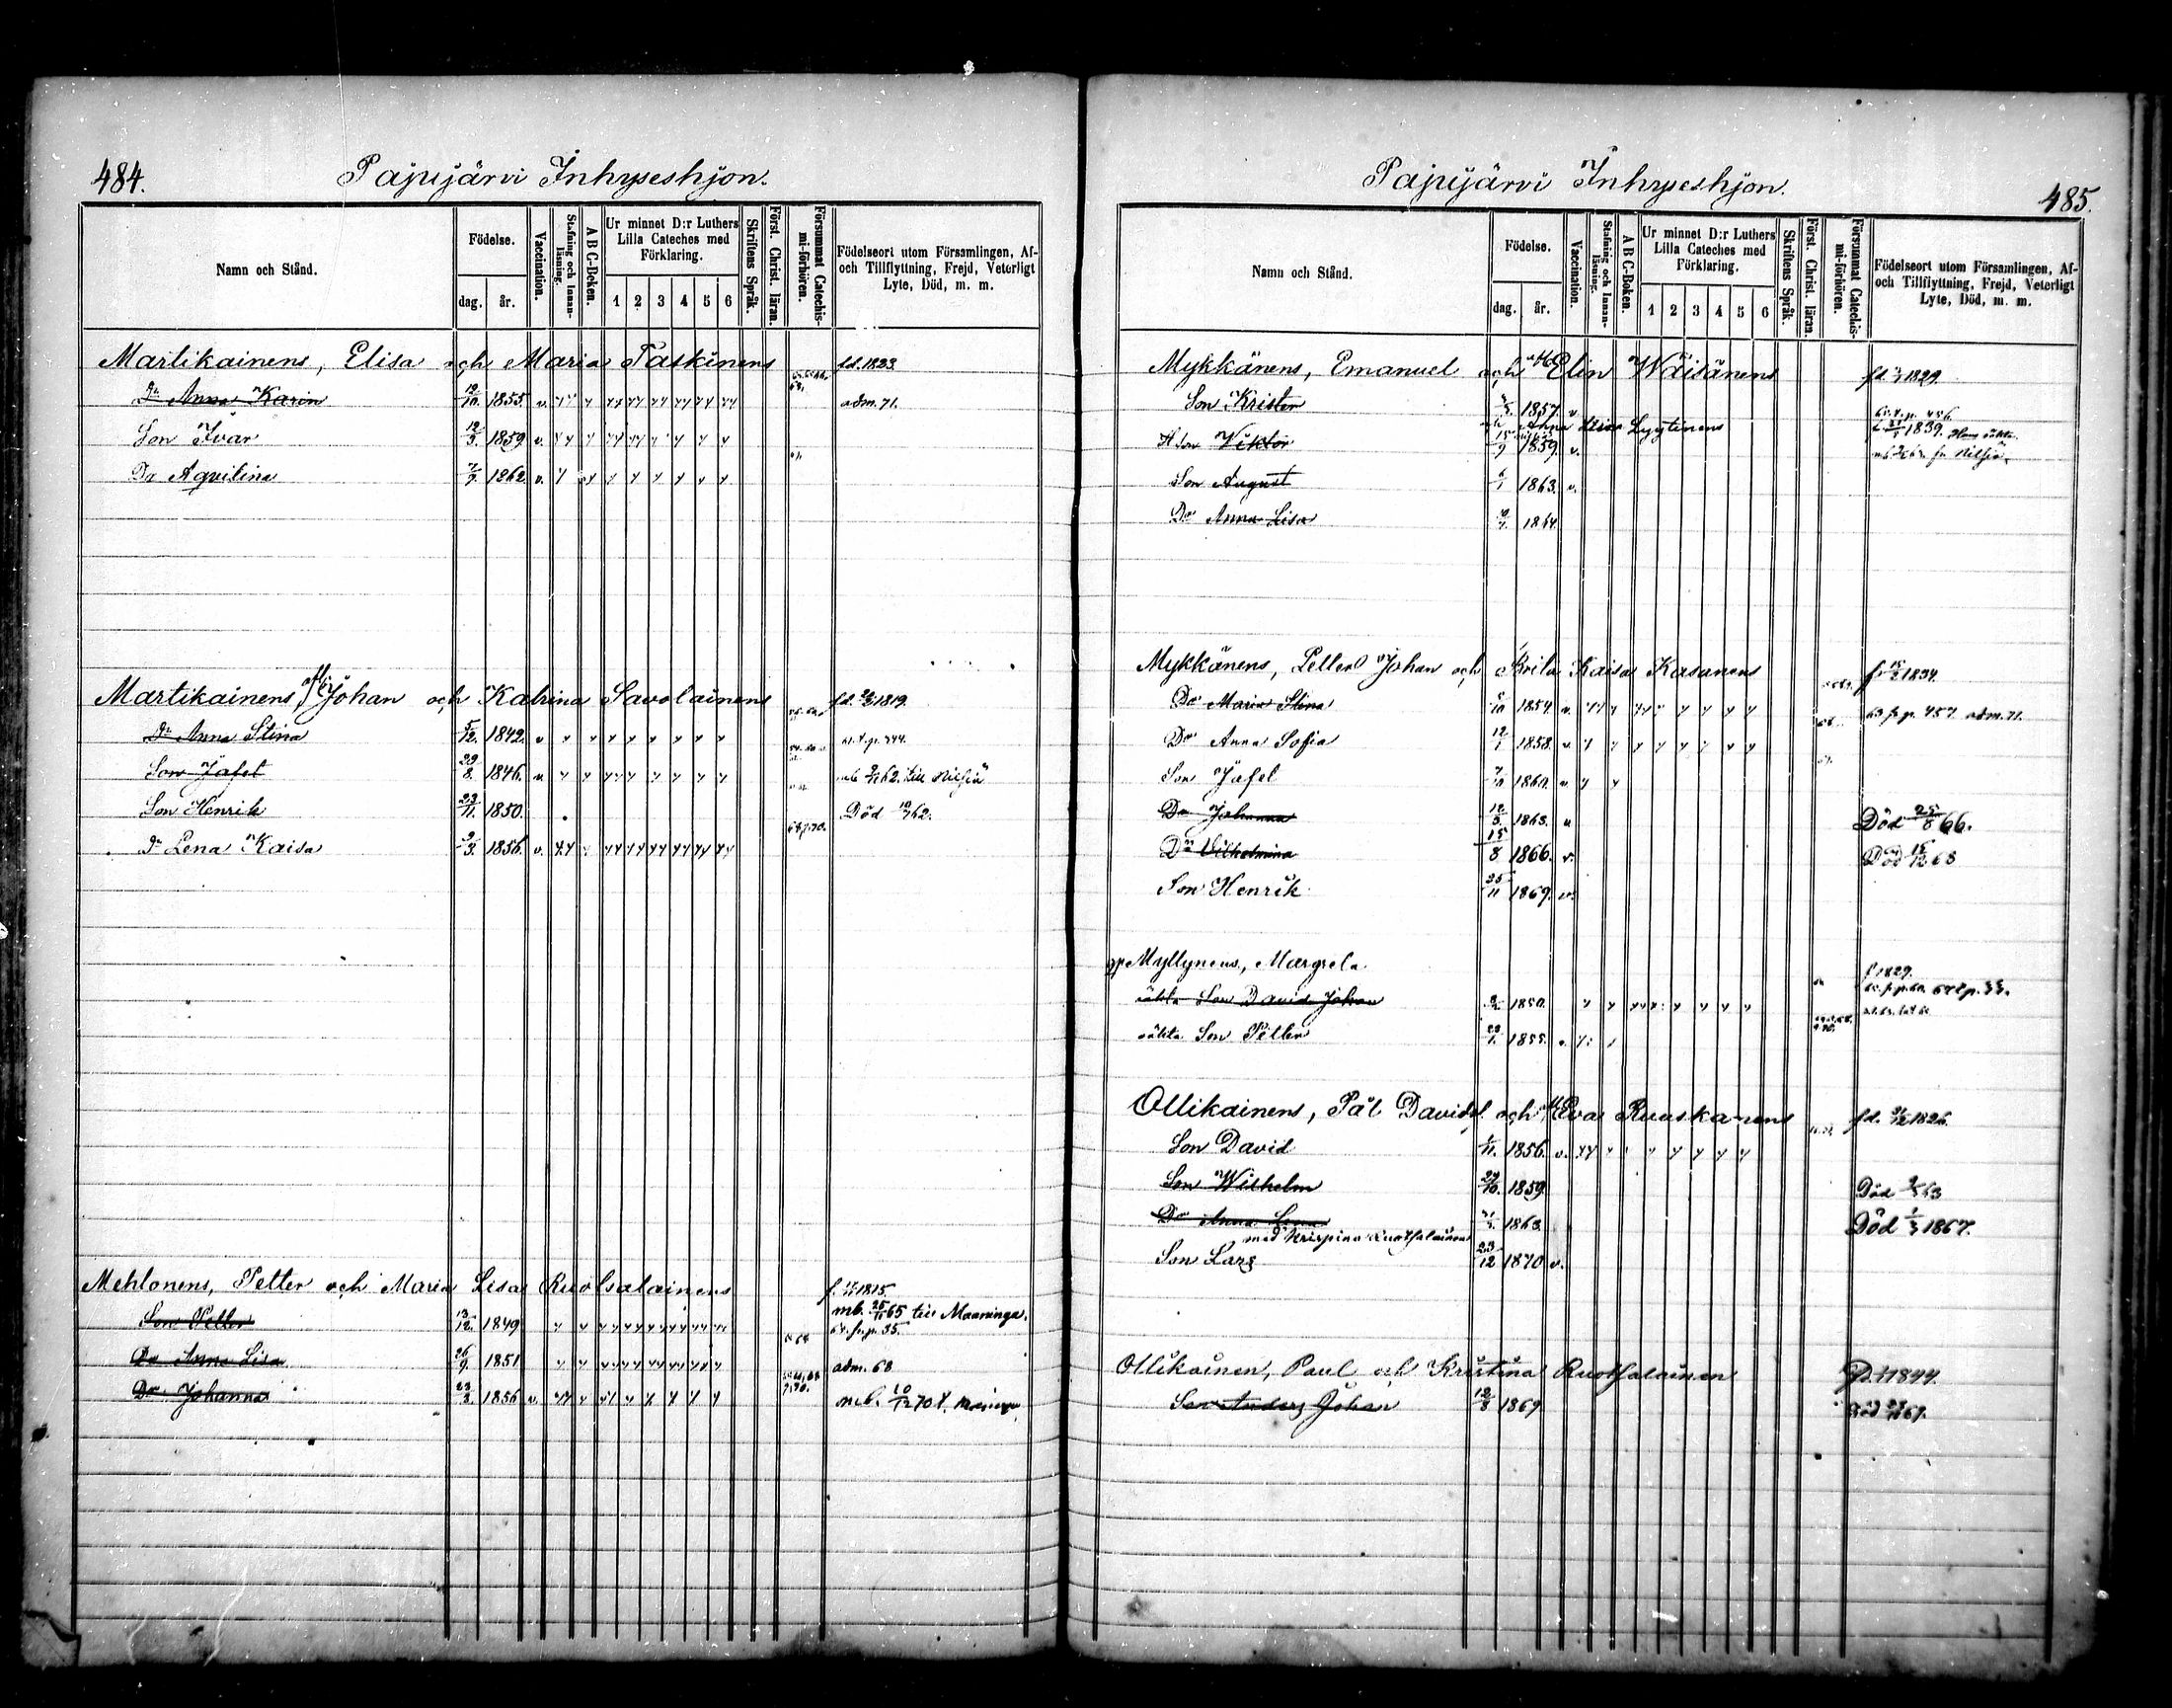 484.
Pajujärvi Inhyseshjon.
Namn och Stånd.
Födelse.
dag. år.
Vaccination.
Stafning och Innanläsning.
A B C-Boken.
Ur minnet D:r Luthers Lilla Cateches med Förklaring.
1 2 3 4 5 6
Skriftens Språk.
Först. Christ. läran.
Försummat Catechismi-förhören.
Födelseort utom Församlingen, Af- och Tillflyttning, Frejd, Veterligt Lyte, Död, m. m.
Martikainens, Elisa och Maria Taskinens fd. 1823.
Dr Anna Karin 1855. v. adm. 71.
Son Ivar 12/3. 1859 v.
Dr Aqvilina 1862 v.
Martikainens, Johan och Katrina Savolainens fd. 1819.
Dr Anna Stina 5/12. 1842. v
Son Jafet 29/8. 1846. v till Nilsiä
Son Henrik 23/11. 1850. Död 62.
Dr Lena Kaisa 9/3. 1856. v.
Mehtonens, Petter och Maria Lisa Ruotsalainens f. 1815.
mb. 25/11 65 till Maaninga.
Son Petter 13/12. 1849
Dr Anna Lisa 26/9. 1851 adm. 68
Dr Johanna 23/3. 1856 v. mb. 10/12 70 t. Maaninga
485.
Pajujärvi Inhyseshjon.
Namn och Stånd.
Födelse.
dag. år.
Vaccination.
Stafning och Innanläsning.
A B C-Boken.
Ur minnet D:r Luthers Lilla Cateches med Förklaring.
1 2 3 4 5 6
Skriftens Språk.
Först. Christ. läran.
Försummat Catechismi-förhören.
Födelseort utom Församlingen, Af- och Tillflyttning, Frejd, Veterligt Lyte, Död, m. m.
Mykkänens, Emanuel och Elin Wäisänens fd. 1829.
Son Krister 1857. v
Anna Lisa Lyytinens 1839.
Son Viktor 15/9 1859. v.
Son August 6/1 1863. v.
Dr Anna Lisa 1864.
Mykkänens, Petter Johan och Brita Kaisa Kasanens f. 1834.
Dr Maria Stina 1854. v. p. 457 adm. 71.
Dr Anna Sofia 12/1 1858. v
Son Jafet 1860. v
Dr Johanna 12/3. 1863. v Död 25/8 66.
Dr Vilhelmina 15/8 1866. v. Död 15/12 68
Son Henrik 25/11 1869. v.
Myllynens, Margreta f. 1829.
oäkta Son David Johan 1850.
oäkta Son Petter 1855. v.
Ollikainens, Pål Davids och Eva Ruuskanens fd. 1826.
Son David 1856. v.
Son Wilhelm 29/10. 1859. Död 63
Dr Anna Lena 1863. Död 1/3 1867.
med Krispina Ruotsalainen
Son Lars 23/12 1870 v.
Ollikainen, Paul och Kristina Ruotsalainen 1844.
Son Anders Johan 12/8 1869